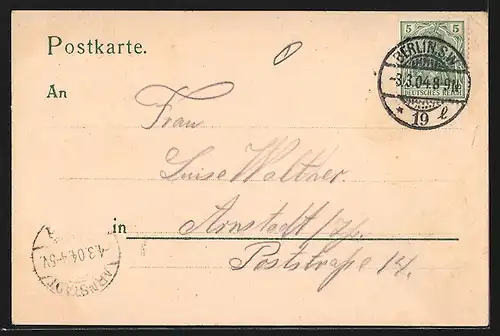 Postkarte.
5 5
BERLIN.S.W.
-3.3.04.8-9N.
DEUTSCHES REICH
* 19 l
An
Frau
Luise Waltner
in Arnstadt i/Th.
Poststraße 14.
4.3.04.4-5V.
ARNSTADT